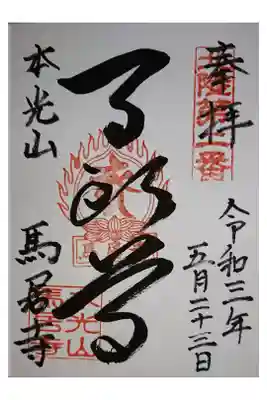 奉拝
令和三年
五月二十三日
馬頭尊
本光山
馬居寺
本光山
馬居寺